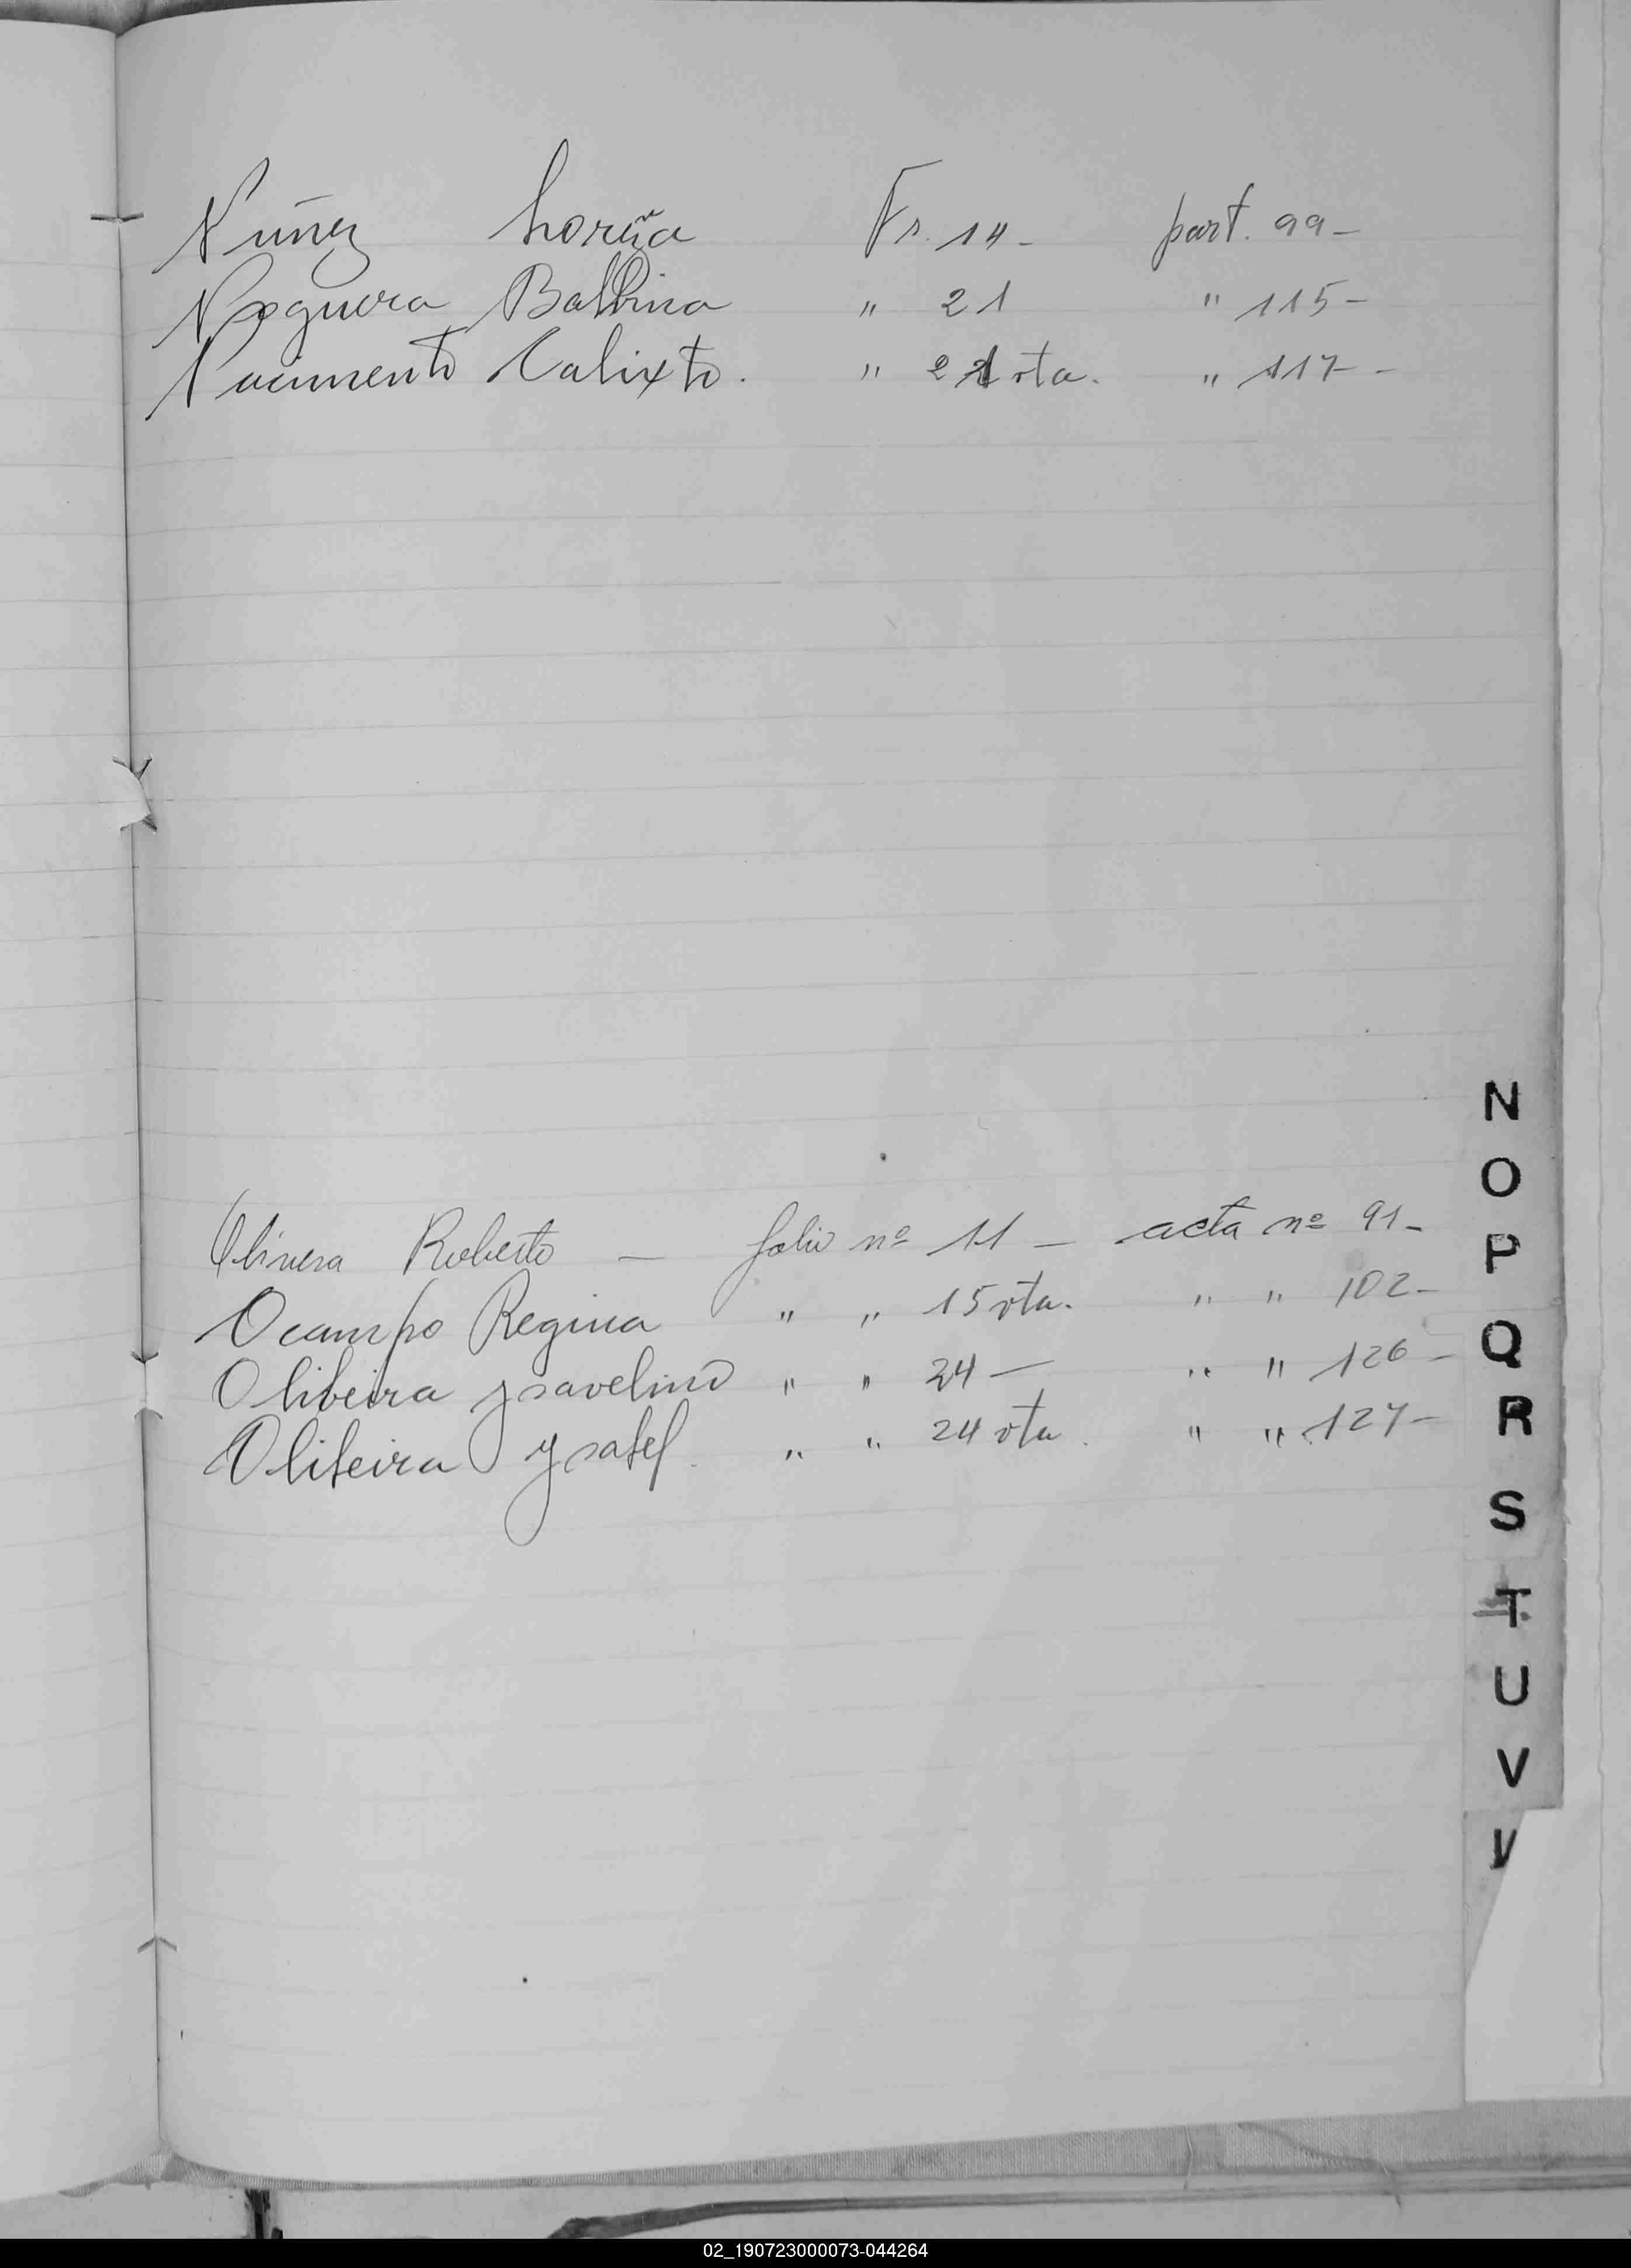 Nuñez Loreña Fs. 14 - part. 99 -
Noguera Balbina " 21 " 115 -
Nacimento Calixto. " 21 vta. " 117 -
Olivera Roberto — folio nº 11 — acta nº 91 -
Ocampo Regina " " 15 vta. " " 102 -
Olibeira Jsavelino " " 24 — " " 126 -
Olibeira Ysabel. " " 24 vta. " " 127 -
N
O
P
Q
R
S
T
U
V
02_190723000073-044264